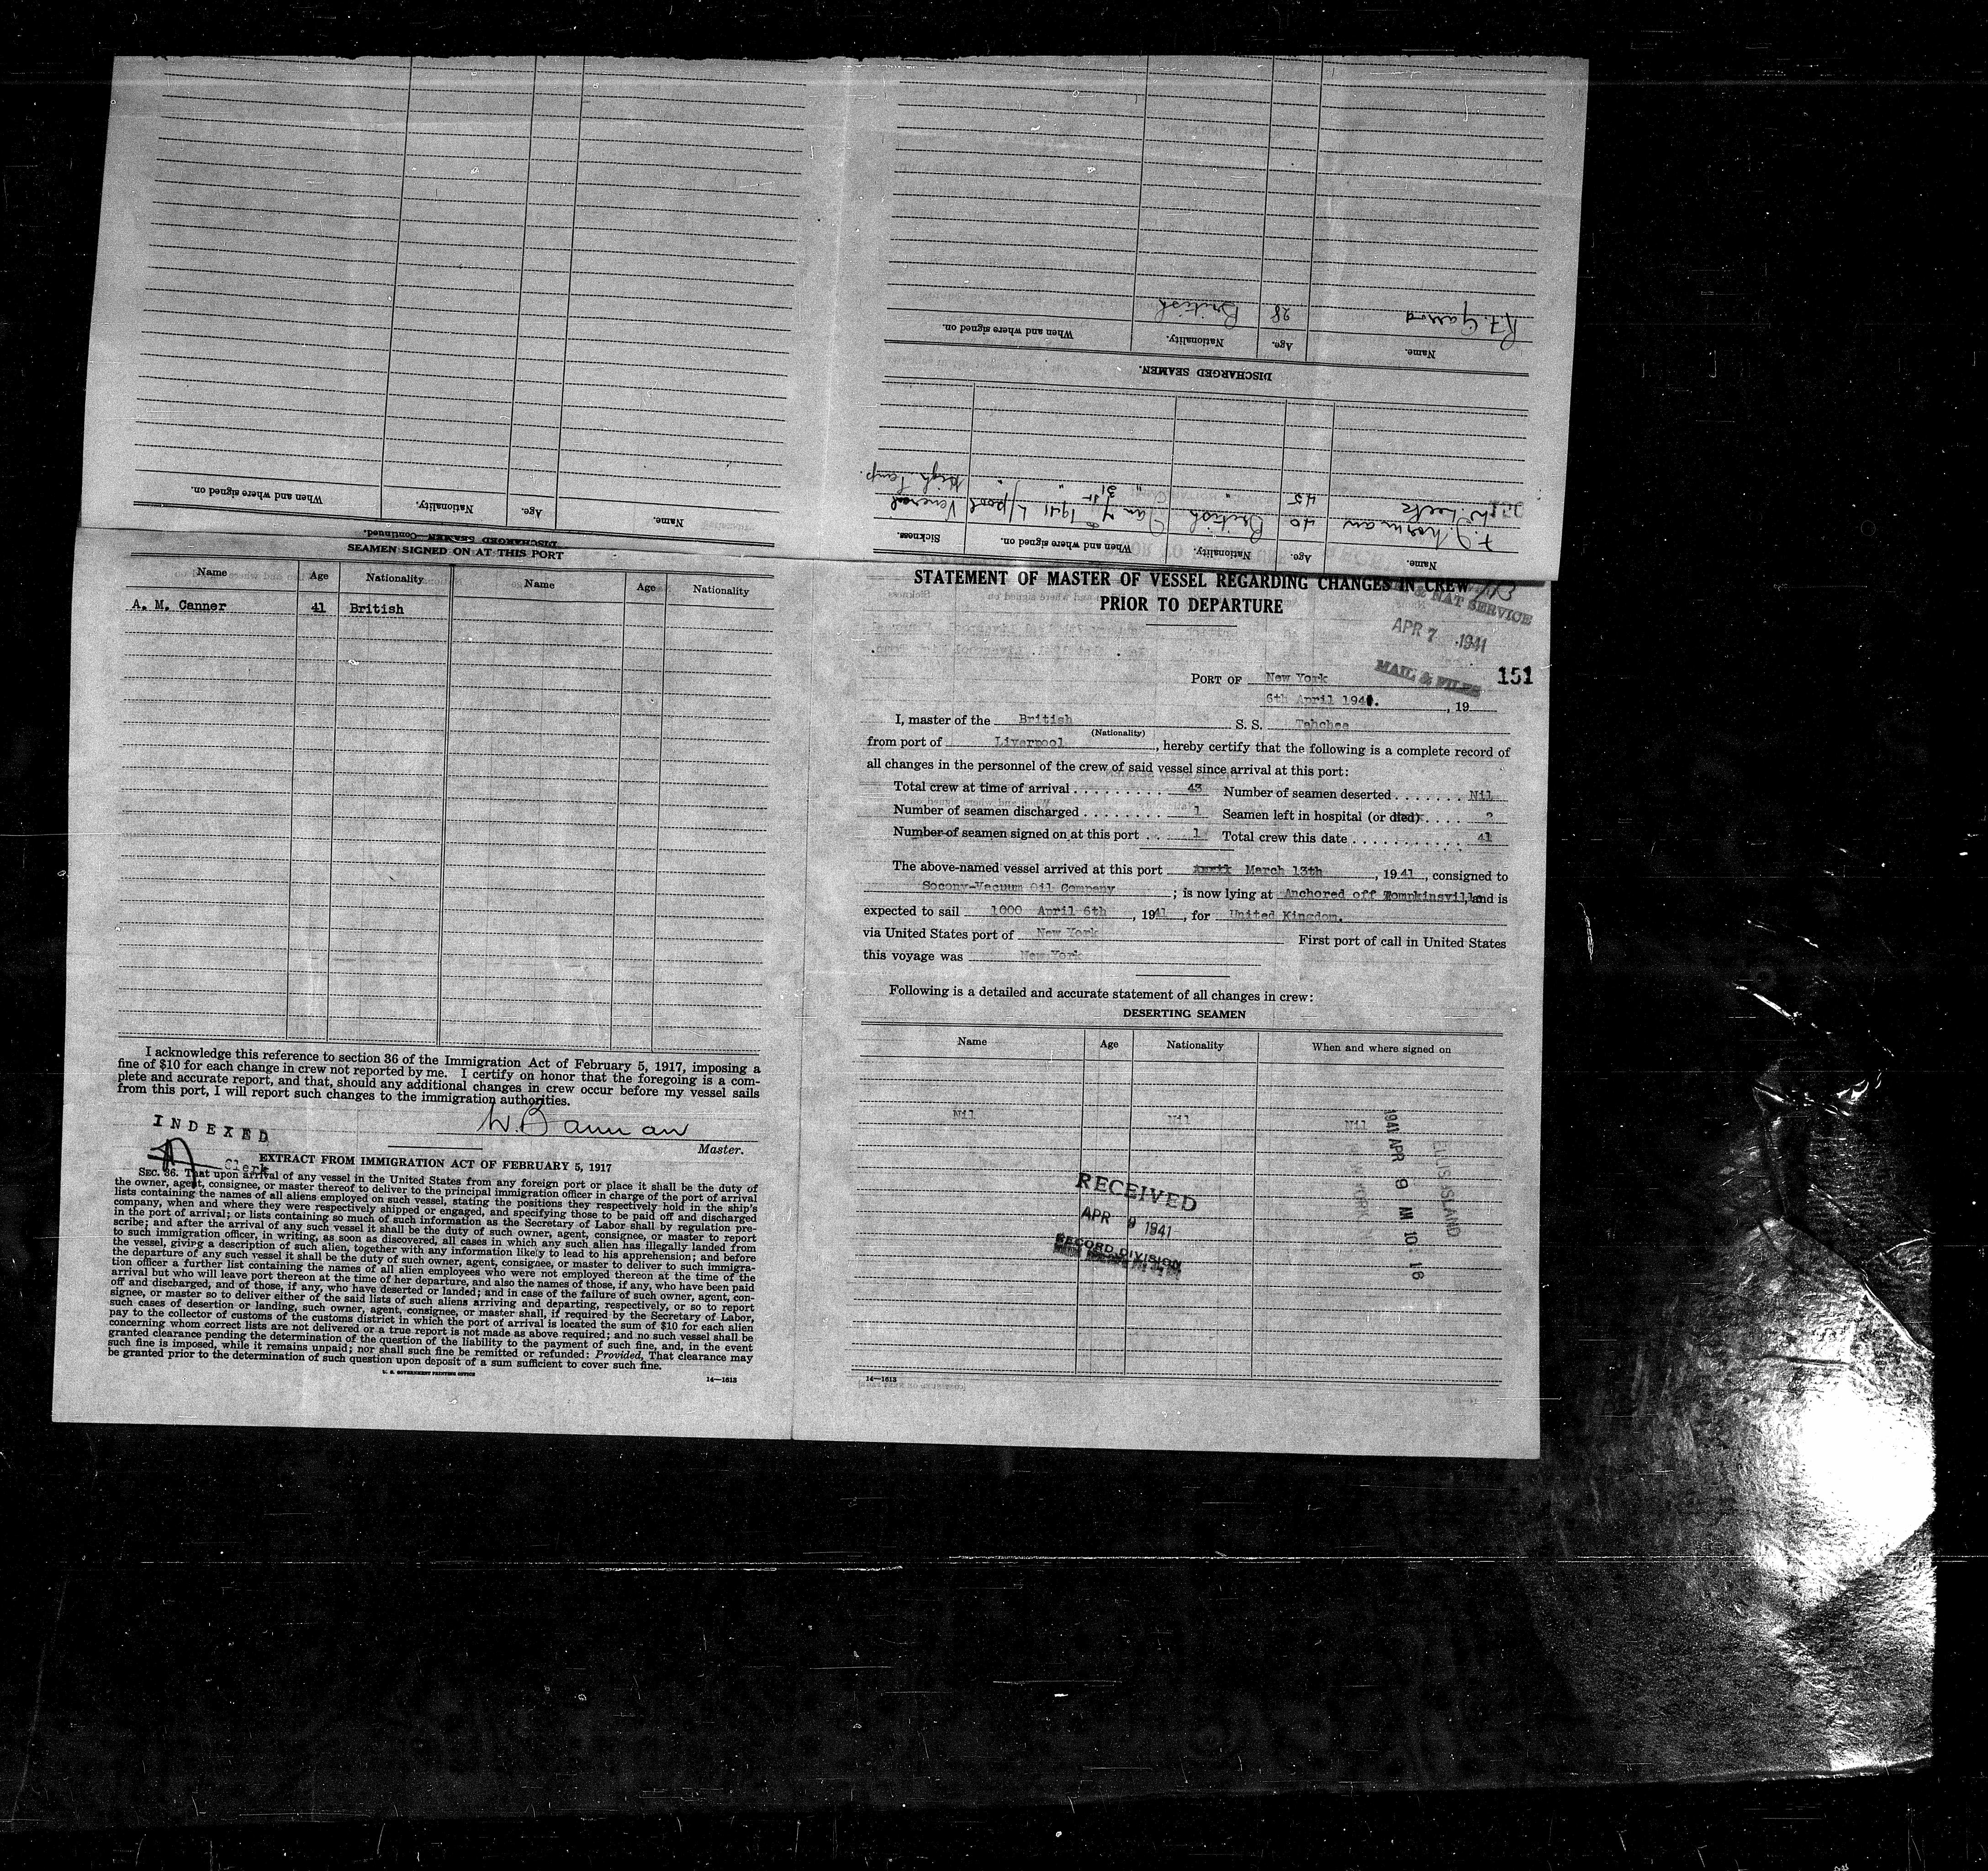 DISCHARGED SEAMEN—Continued.
Name.
Age.
Nationality.
When and where signed on.
Name.
Age.
Nationality.
When and where signed on.
Sickness.
F. J. Norman 40 British Jan 7th 1941 L/pool Venereal
W. Leek 45 " " 31st " High Temp.
DISCHARGED SEAMEN.
Name.
Age.
Nationality.
When and where signed on.
28 British
SEAMEN SIGNED ON AT THIS PORT
Name Age Nationality Name Age Nationality
A. M. Canner 41 British
I acknowledge this reference to section 36 of the Immigration Act of February 5, 1917, imposing a
fine of $10 for each change in crew not reported by me. I certify on honor that the foregoing is a com-
plete and accurate report, and that, should any additional changes in crew occur before my vessel sails
from this port, I will report such changes to the immigration authorities.
Master.
INDEXED
Clerk
EXTRACT FROM IMMIGRATION ACT OF FEBRUARY 5, 1917
SEC. 36. That upon arrival of any vessel in the United States from any foreign port or place it shall be the duty of
the owner, agent, consignee, or master thereof to deliver to the principal immigration officer in charge of the port of arrival
lists containing the names of all aliens employed on such vessel, stating the positions they respectively hold in the ship's
company, when and where they were respectively shipped or engaged, and specifying those to be paid off and discharged
in the port of arrival; or lists containing so much of such information as the Secretary of Labor shall by regulation pre-
scribe; and after the arrival of any such vessel it shall be the duty of such owner, agent, consignee, or master to report
to such immigration officer, in writing, as soon as discovered, all cases in which any such alien has illegally landed from
the vessel, giving a description of such alien, together with any information likely to lead to his apprehension; and before
the departure of any such vessel it shall be the duty of such owner, agent, consignee, or master to deliver to such immigra-
tion officer a further list containing the names of all alien employees who were not employed thereon at the time of the
arrival but who will leave port thereon at the time of her departure, and also the names of those, if any, who have been paid
off and discharged, and of those, if any, who have deserted or landed; and in case of the failure of such owner, agent, con-
signee, or master so to deliver either of the said lists of such aliens arriving and departing, respectively, or so to report
such cases of desertion or landing, such owner, agent, consignee, or master shall, if required by the Secretary of Labor,
pay to the collector of customs of the customs district in which the port of arrival is located the sum of $10 for each alien
concerning whom correct lists are not delivered or a true report is not made as above required; and no such vessel shall be
granted clearance pending the determination of the question of the liability to the payment of such fine, and, in the event
such fine is imposed, while it remains unpaid; nor shall such fine be remitted or refunded: Provided, That clearance may
be granted prior to the determination of such question upon deposit of a sum sufficient to cover such fine.
U. S. GOVERNMENT PRINTING OFFICE
14—1613
STATEMENT OF MASTER OF VESSEL REGARDING CHANGES IN CREW
PRIOR TO DEPARTURE
& NAT SERVICE
APR 7 1941
MAIL & FILES
151
PORT OF New York
6th April 1941. , 19
I, master of the British S. S. Tahchee
(Nationality)
from port of Liverpool , hereby certify that the following is a complete record of
all changes in the personnel of the crew of said vessel since arrival at this port:
Total crew at time of arrival . . . . . . . . . 43 Number of seamen deserted . . . . . . . Nil
Number of seamen discharged . . . . . . . . 1 Seamen left in hospital (or died) . . . . 2
Number of seamen signed on at this port . . 1 Total crew this date . . . . . . . . . . . 41
The above-named vessel arrived at this port April March 13th , 1941, consigned to
Socony-Vacuum Oil Company ; is now lying at Anchored off Tompkinsville, and is
expected to sail 1000 April 6th , 1941, for United Kingdom.
via United States port of New York First port of call in United States
this voyage was New York
Following is a detailed and accurate statement of all changes in crew:
DESERTING SEAMEN
Name Age Nationality When and where signed on
Nil Nil Nil
RECEIVED
APR 9 1941
RECORD DIVISION
1941 APR 9 AM 10 16
ELLIS ISLAND
14—1613